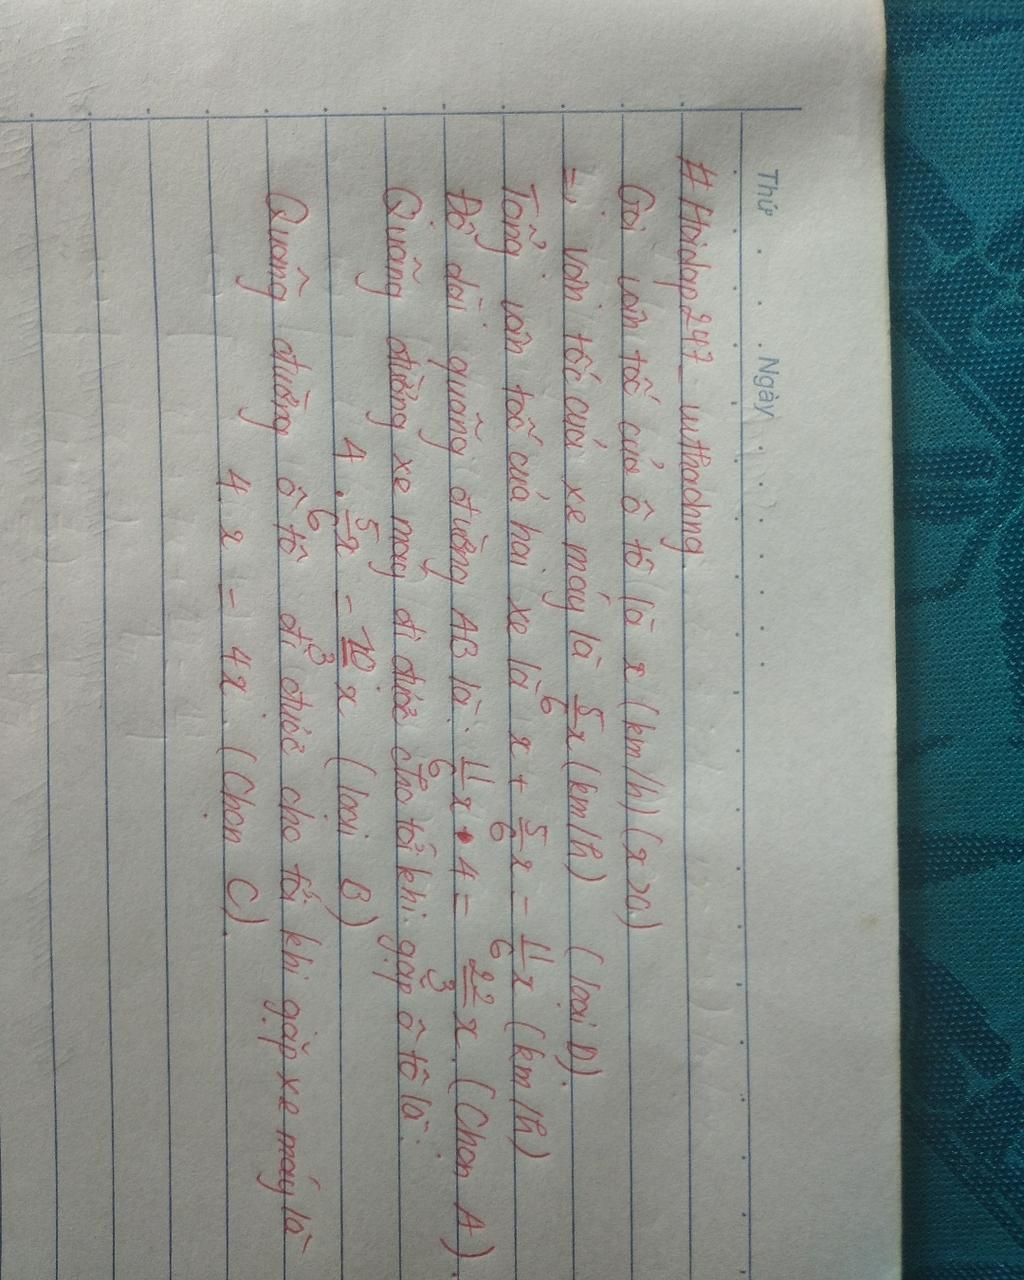 Thứ . . . Ngày . . . . . . . .
# Hoidap247 _ vuthadung
Gọi vận tốc của ô tô là x (km/h) (x>0)
=> vận tốc của xe máy là 5/6 x (km/h) (loại D).
Tổng vận tốc của hai xe là x + 5/6 x = 11/6 x (km/h)
Độ dài quãng đường AB là: 11/6 x . 4 = 22/3 x. (Chọn A).
Quãng đường xe máy đi được cho tới khi gặp ô tô là:
4 . 5/6 x = 10/3 x (loại B)
Quãng đường ô tô đi được cho tới khi gặp xe máy là
4. x = 4x. (Chọn C).